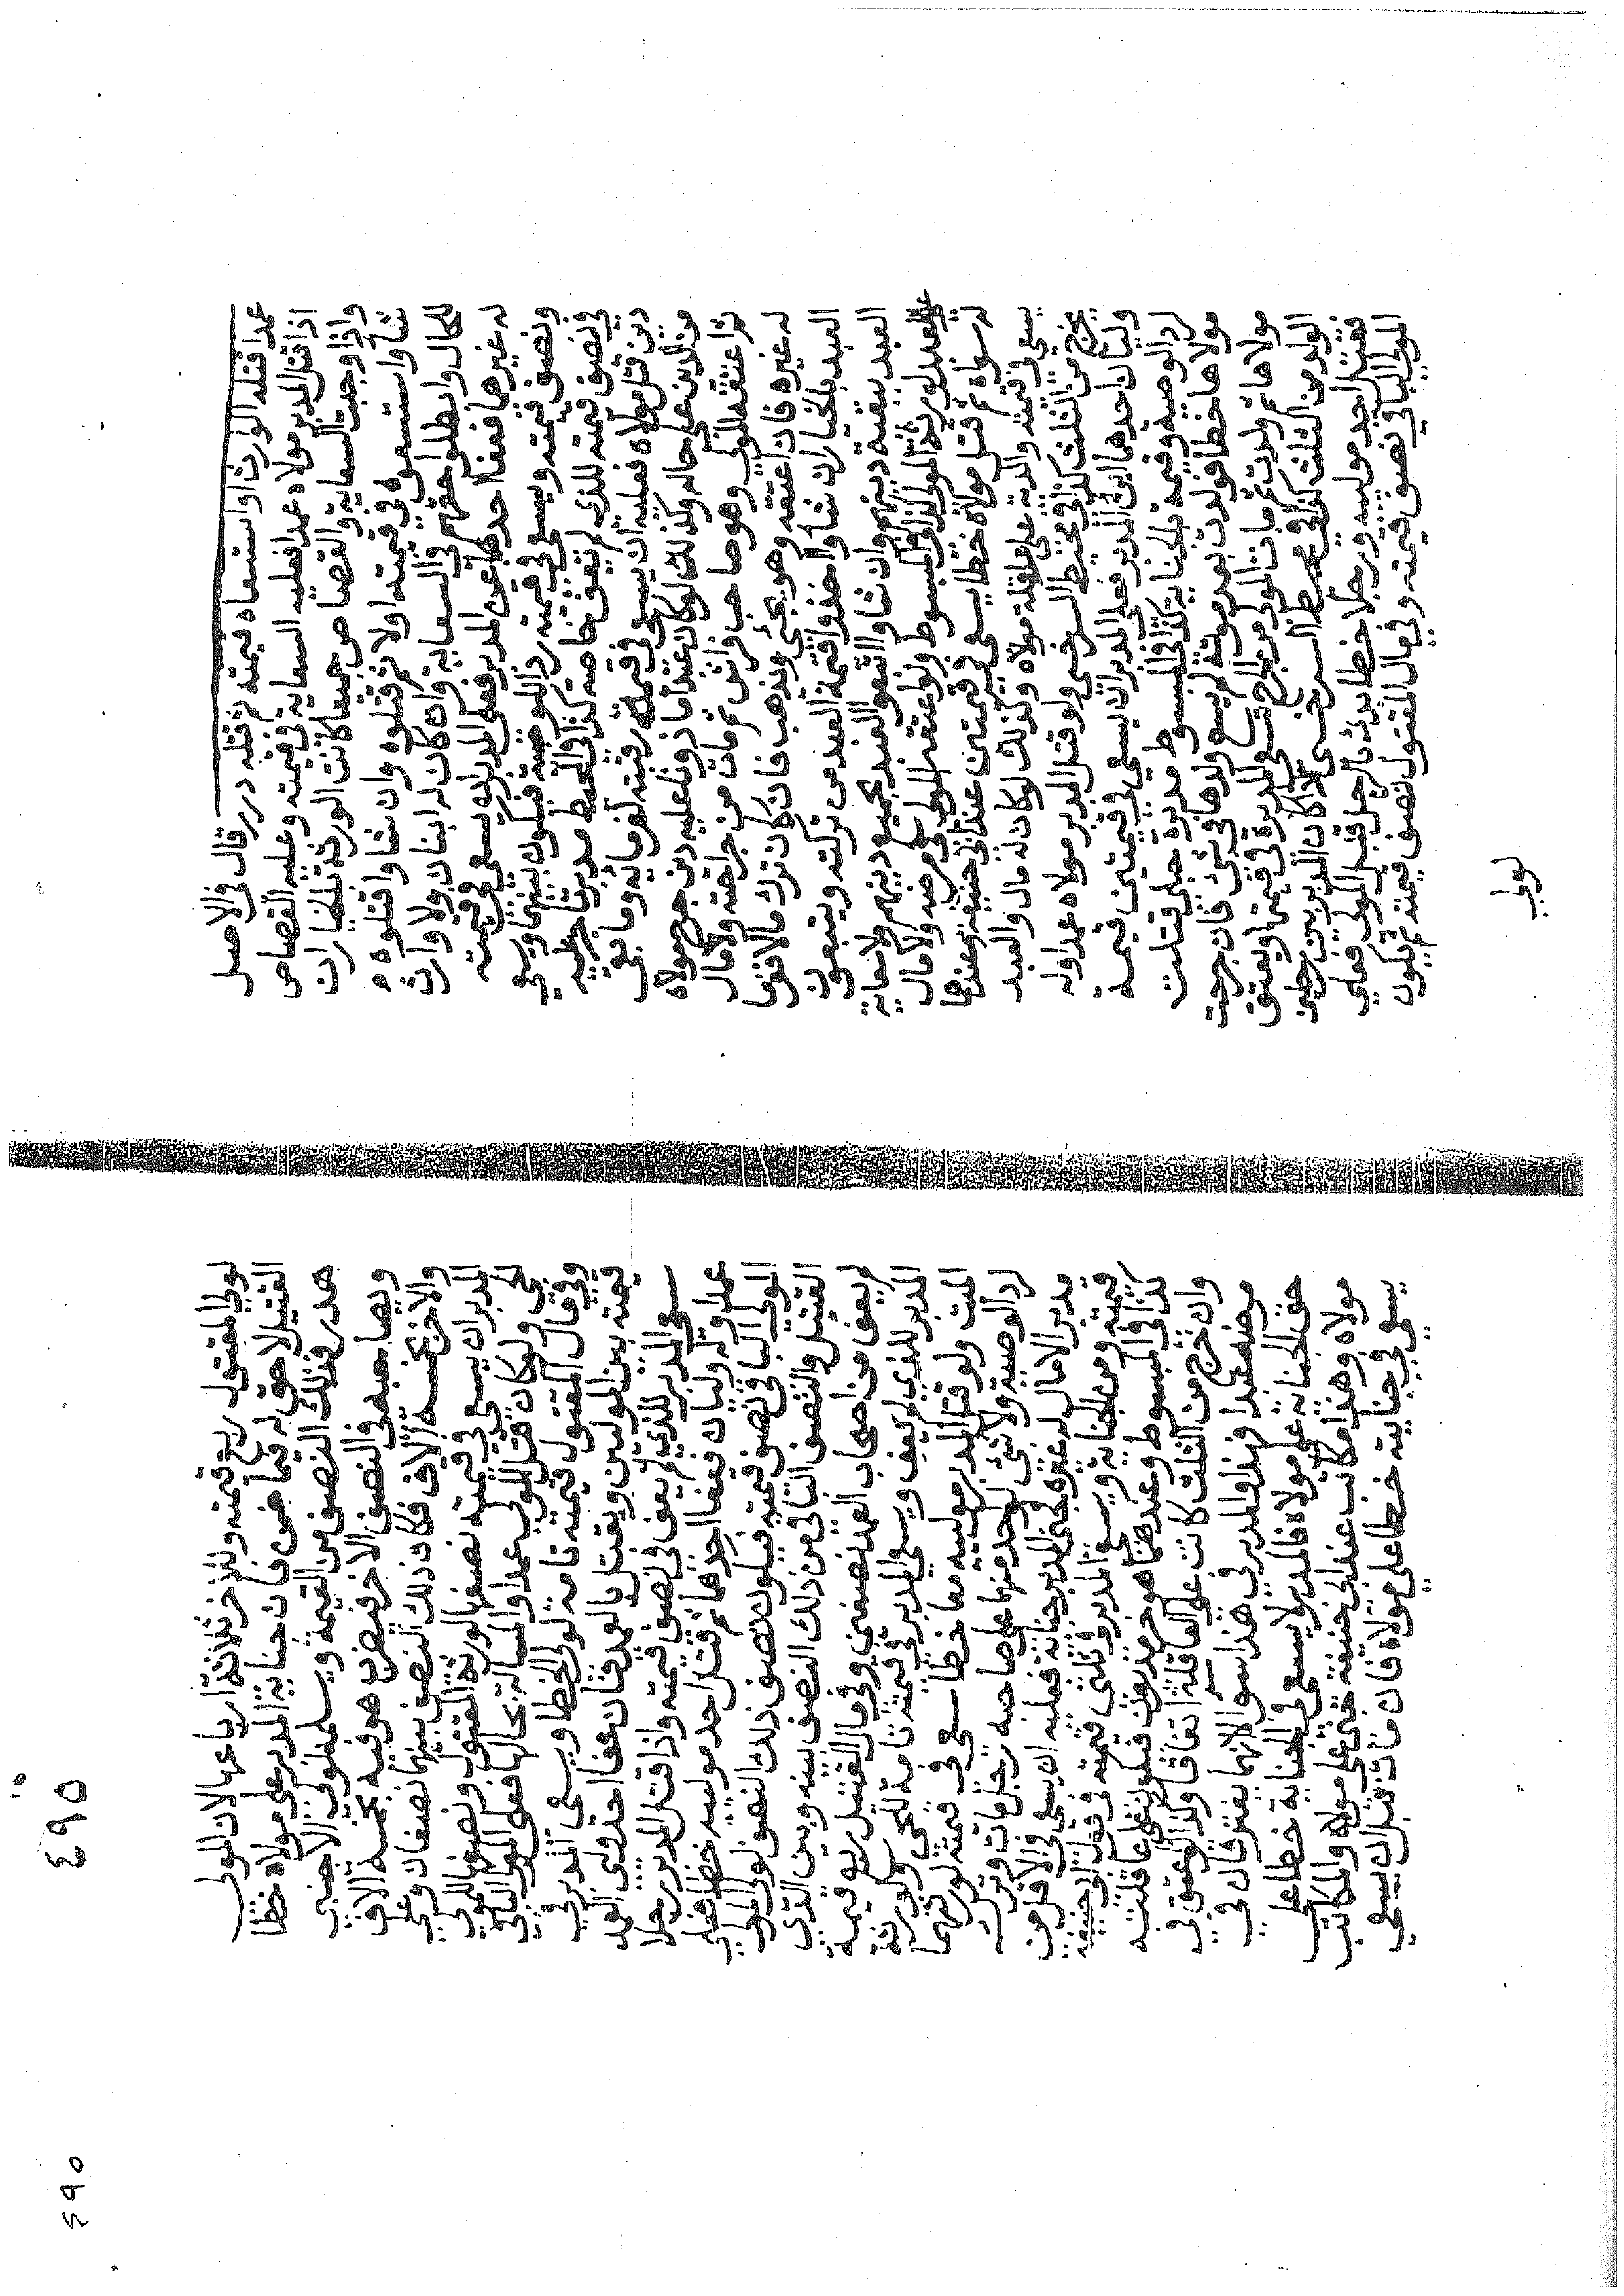 عمدا قتله الوارث او استسعاه قيمته ثم قتله درر قال في الاصل
اذا قتل المدبر مولاه عمدا فعليه السعاية في قيمته وعليه القصاص
واذا وجبت السعاية والقصاص جميعا كانت الورثة بالخيار ان
شاوا استسعوه في قيمته اولا ثم قتلوه وان شاوا قتلوه ه
للحال وابطلوا حقهم في السعاية وان كان له ابنان ولا وارث
له غيرهما فعفا احدهما عن المدبر فعلى المدبر ان يسعى في قيمته
ونصف قيمته ويسعى في قيمته رد اللوصية فيكون بينهما ويسعى
في نصف قيمته للذي لم يعف خاصة كذا في المحيط مدبر تاجر عليه
دين قتل مولاه فعليه ان يسعى في قيمة رقبته لغرمايه وما بقي
من الدين على حاله وكذلك لو كان عبدا ماذونا عليه دين جرح مولاه
ثم اعتقه المولى وهو صاحب فراش ثم مات من جراحته ولا مال
له غيره فان اعتقه وهو يجئ ويذهب فان كان ترك مالا فغرما
العبد بالخيار ان شاوا اخذوا قيمة العبد من تركته ويتبعون
العبد ببقية دينهم وان شاوا اتبعوا العبد بجميع دينهم ولا سعاية
على العبد لورثة المولى كذا في المبسوط ولو اعتقه المولى في مرضه ولا مال
له سواه ثم قتل مولاه خطا يسعى في قيمتين عند ابي حنيفة وعندهما
يسعى في قيمته والدية على عاقلة مولاه وكذلك لو كان له مال والعبد
يخرج من الثلث كذا في محيط السرخسي ولو قتل المدبر مولاه عمدا وله
وليان احدهما ابن المدبر فعلى المدبر ان يسعى في قيمتين قيمة
لرد الوصية وقيمة بالجناية كذا في المبسوط مدبرة حبلى قتلت
مولاها خطا فولدت بعد موته لم يسع ولدها في شئ فان جرحت
مولاها ثم ولدت ثم مات المولى من الجرح تسعى المدبرة في قيمتها ويعتق
الولد من الثلث كذا في محيط السرخسي اذا كان المدبر بين رجلين
فقتل احد موليه ورجلا خطا بدئ بالرجل قبل المولى فعلى
المولى الباقي نصف قيمته وفي مال المقتول نصف قيمته ثم يكون
لولي
لولي المقتول ربع قيمته وللاخر ثلاثة ارباعها لان المولى
القتيل لا حق له فيما ضمن فان جناية المدبر على مولاه خطا
هدر فذلك النصف من القيمة ويسلم لولي الاجنبي
ويصاحبه في النصف الاخر فيضرب هو فيه بخمسة الاف
والاخر بخمسة الاف فكان ذلك النصف بينهما نصفان وعلى
المدبر ان يسعى في قيمته نصفها لورثة المقتول ونصفها للمولى
الحي ولو كان قتل المولى عمدا والمسالة بحالها فعلى المولى الباقي
وفي مال المقتول قيمته تامة لولي الخطا ويسعى المدبر في
قيمته بين الموليين ويقتل بالعمد فان عفا احد وليي العمد
سعى المدبر للذي لم يعف في نصف قيمته واذا قتل المدبر رجلا
عمدا وله وليان فعفا احدهما ثم قتل احد موليه خطا فعلى
المولى الباقي نصف قيمته فيكون نصف ذلك النصف لولي المولى
القتيل والنصف الثاني من ذلك النصف بينه وبين الذي
لم يعف من اصحاب العمد نصفين وفي مال القتيل ربع قيمة
المدبر للذي لم يعف ويسعى المدبر في قيمته تامة للحي ولورثة
الميت ولو قتل المدبر موليه معا خطا سعى في قيمته لورثتهما
لرد الوصية ولا شئ لواحد منهما على صاحبه رجل مات وترك
مدبرا لا مال له غيره فجنى المدبر جناية فعليه ان يسعى في الاقل من
قيمته ومن الجناية ويسعى المدبر في ثلثي قيمته في قول ابي حنيفة
كذا في المبسوط وعندهما هو حر مديون فيكون على عاقلته
وان خرج من الثلث كانت على العاقلة اتفاقا وكذا لو عتق في
مرضه هكذا فهذا والمدبر في هذا سوا الا انهما يفترقان في
حق الجناية على مولاه فالمدبر لا يسعى في الجناية خطا على
مولاه وهذا مكاتب عند ابي حنيفة جنى على مولاه والمكاتب
يسعى في جنايته خطا على مولاه فان مات قبل ان يسعى
٤٩٥
٤٩٥